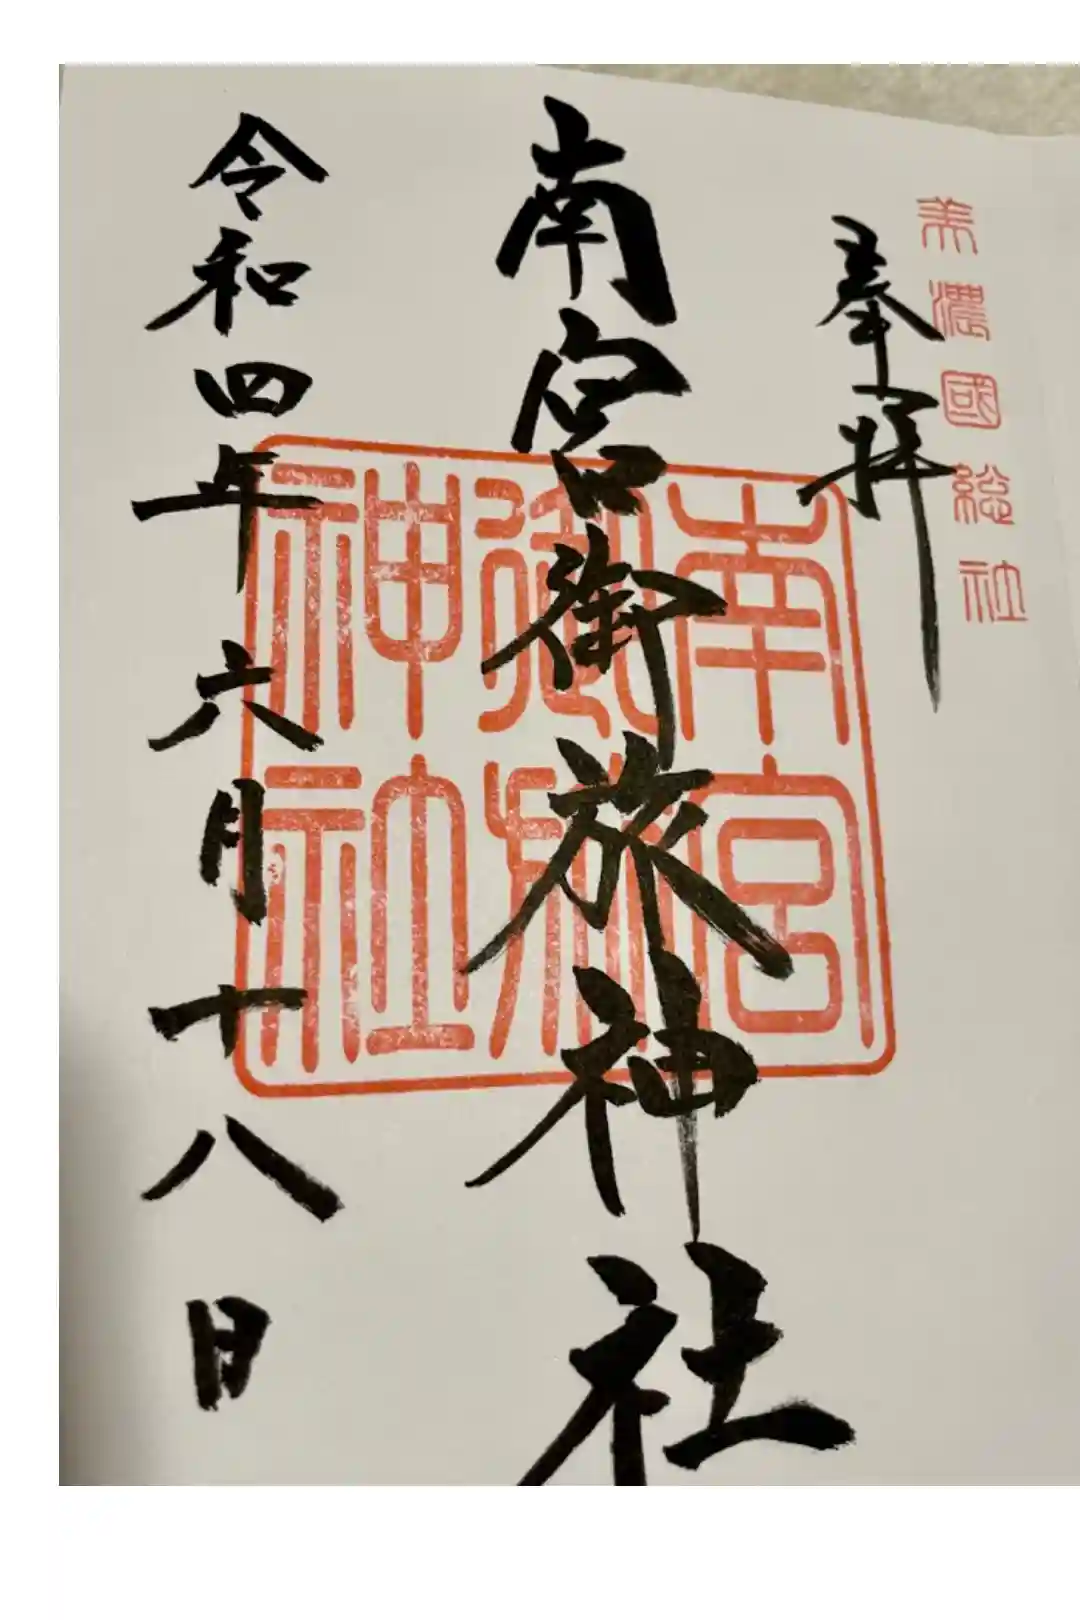 美濃國総社
奉拝
南宮御旅神社
南宮
御旅
神社
令和四年六月十八日